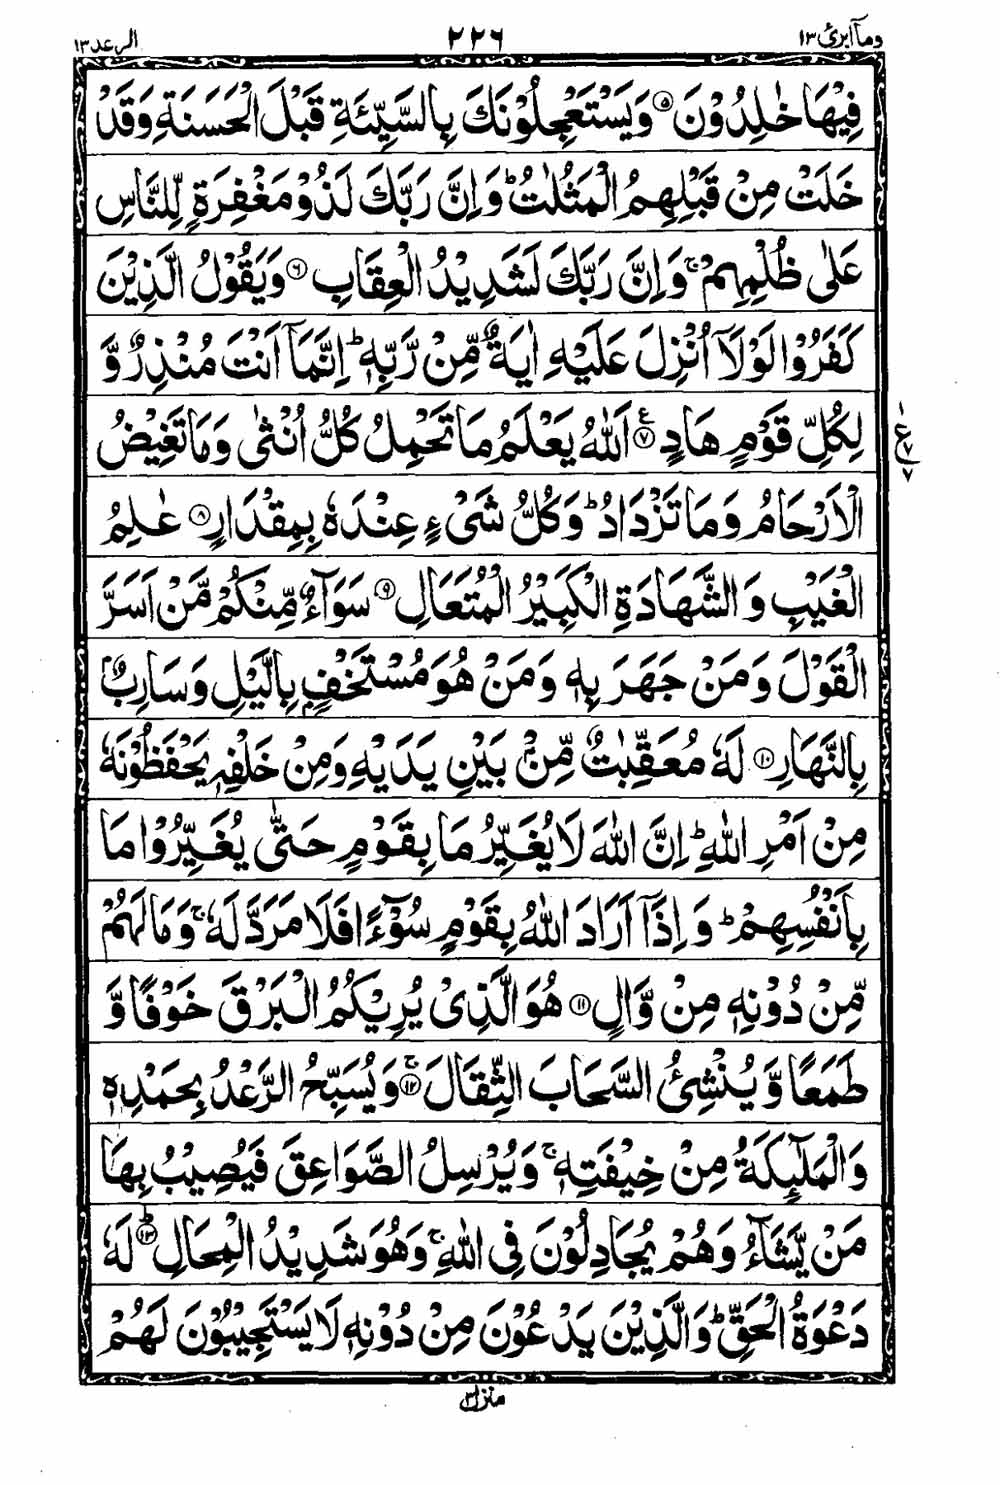 ومآ ابرئ ١٣ ٢٢٦ الرعد ١٣
فِيْهَا خٰلِدُوْنَ ۝٥ وَيَسْتَعْجِلُوْنَكَ بِالسَّيِّئَةِ قَبْلَ الْحَسَنَةِ وَقَدْ
خَلَتْ مِنْ قَبْلِهِمُ الْمَثُلٰتُ ؕ وَاِنَّ رَبَّكَ لَذُوْ مَغْفِرَةٍ لِّلنَّاسِ
عَلٰى ظُلْمِهِمْ ۚ وَاِنَّ رَبَّكَ لَشَدِيْدُ الْعِقَابِ ۝٦ وَيَقُوْلُ الَّذِيْنَ
كَفَرُوْا لَوْلَاۤ اُنْزِلَ عَلَيْهِ اٰيَةٌ مِّنْ رَّبِّهٖ ؕ اِنَّمَاۤ اَنْتَ مُنْذِرٌ وَّ
لِكُلِّ قَوْمٍ هَادٍ ۝٧ ع اَللّٰهُ يَعْلَمُ مَا تَحْمِلُ كُلُّ اُنْثٰى وَمَا تَغِيْضُ
الْاَرْحَامُ وَمَا تَزْدَادُ ؕ وَكُلُّ شَىْءٍ عِنْدَهٗ بِمِقْدَارٍ ۝٨ عٰلِمُ
الْغَيْبِ وَالشَّهَادَةِ الْكَبِيْرُ الْمُتَعَالِ ۝٩ سَوَآءٌ مِّنْكُمْ مَّنْ اَسَرَّ
الْقَوْلَ وَمَنْ جَهَرَ بِهٖ وَمَنْ هُوَ مُسْتَخْفٍۭ بِالَّيْلِ وَسَارِبٌۢ
بِالنَّهَارِ ۝١٠ لَهٗ مُعَقِّبٰتٌ مِّنْۢ بَيْنِ يَدَيْهِ وَمِنْ خَلْفِهٖ يَحْفَظُوْنَهٗ
مِنْ اَمْرِ اللّٰهِ ؕ اِنَّ اللّٰهَ لَا يُغَيِّرُ مَا بِقَوْمٍ حَتّٰى يُغَيِّرُوْا مَا
بِاَنْفُسِهِمْ ؕ وَاِذَاۤ اَرَادَ اللّٰهُ بِقَوْمٍ سُوْٓءًا فَلَا مَرَدَّ لَهٗ ۚ وَمَا لَهُمْ
مِّنْ دُوْنِهٖ مِنْ وَّالٍ ۝١١ هُوَ الَّذِىْ يُرِيْكُمُ الْبَرْقَ خَوْفًا وَّ
طَمَعًا وَّيُنْشِئُ السَّحَابَ الثِّقَالَ ۝١٢ ۚ وَيُسَبِّحُ الرَّعْدُ بِحَمْدِهٖ
وَالْمَلٰٓئِكَةُ مِنْ خِيْفَتِهٖ ۚ وَيُرْسِلُ الصَّوَاعِقَ فَيُصِيْبُ بِهَا
مَنْ يَّشَآءُ وَهُمْ يُجَادِلُوْنَ فِى اللّٰهِ ۚ وَهُوَ شَدِيْدُ الْمِحَالِ ۝١٣ ؕ لَهٗ
دَعْوَةُ الْحَقِّ ؕ وَالَّذِيْنَ يَدْعُوْنَ مِنْ دُوْنِهٖ لَا يَسْتَجِيْبُوْنَ لَهُمْ
منزل ٣